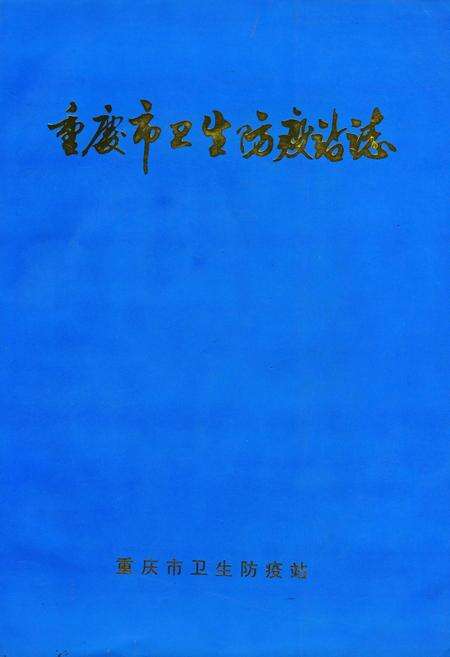 重慶市卫生防疫站誌
重庆市卫生防疫站